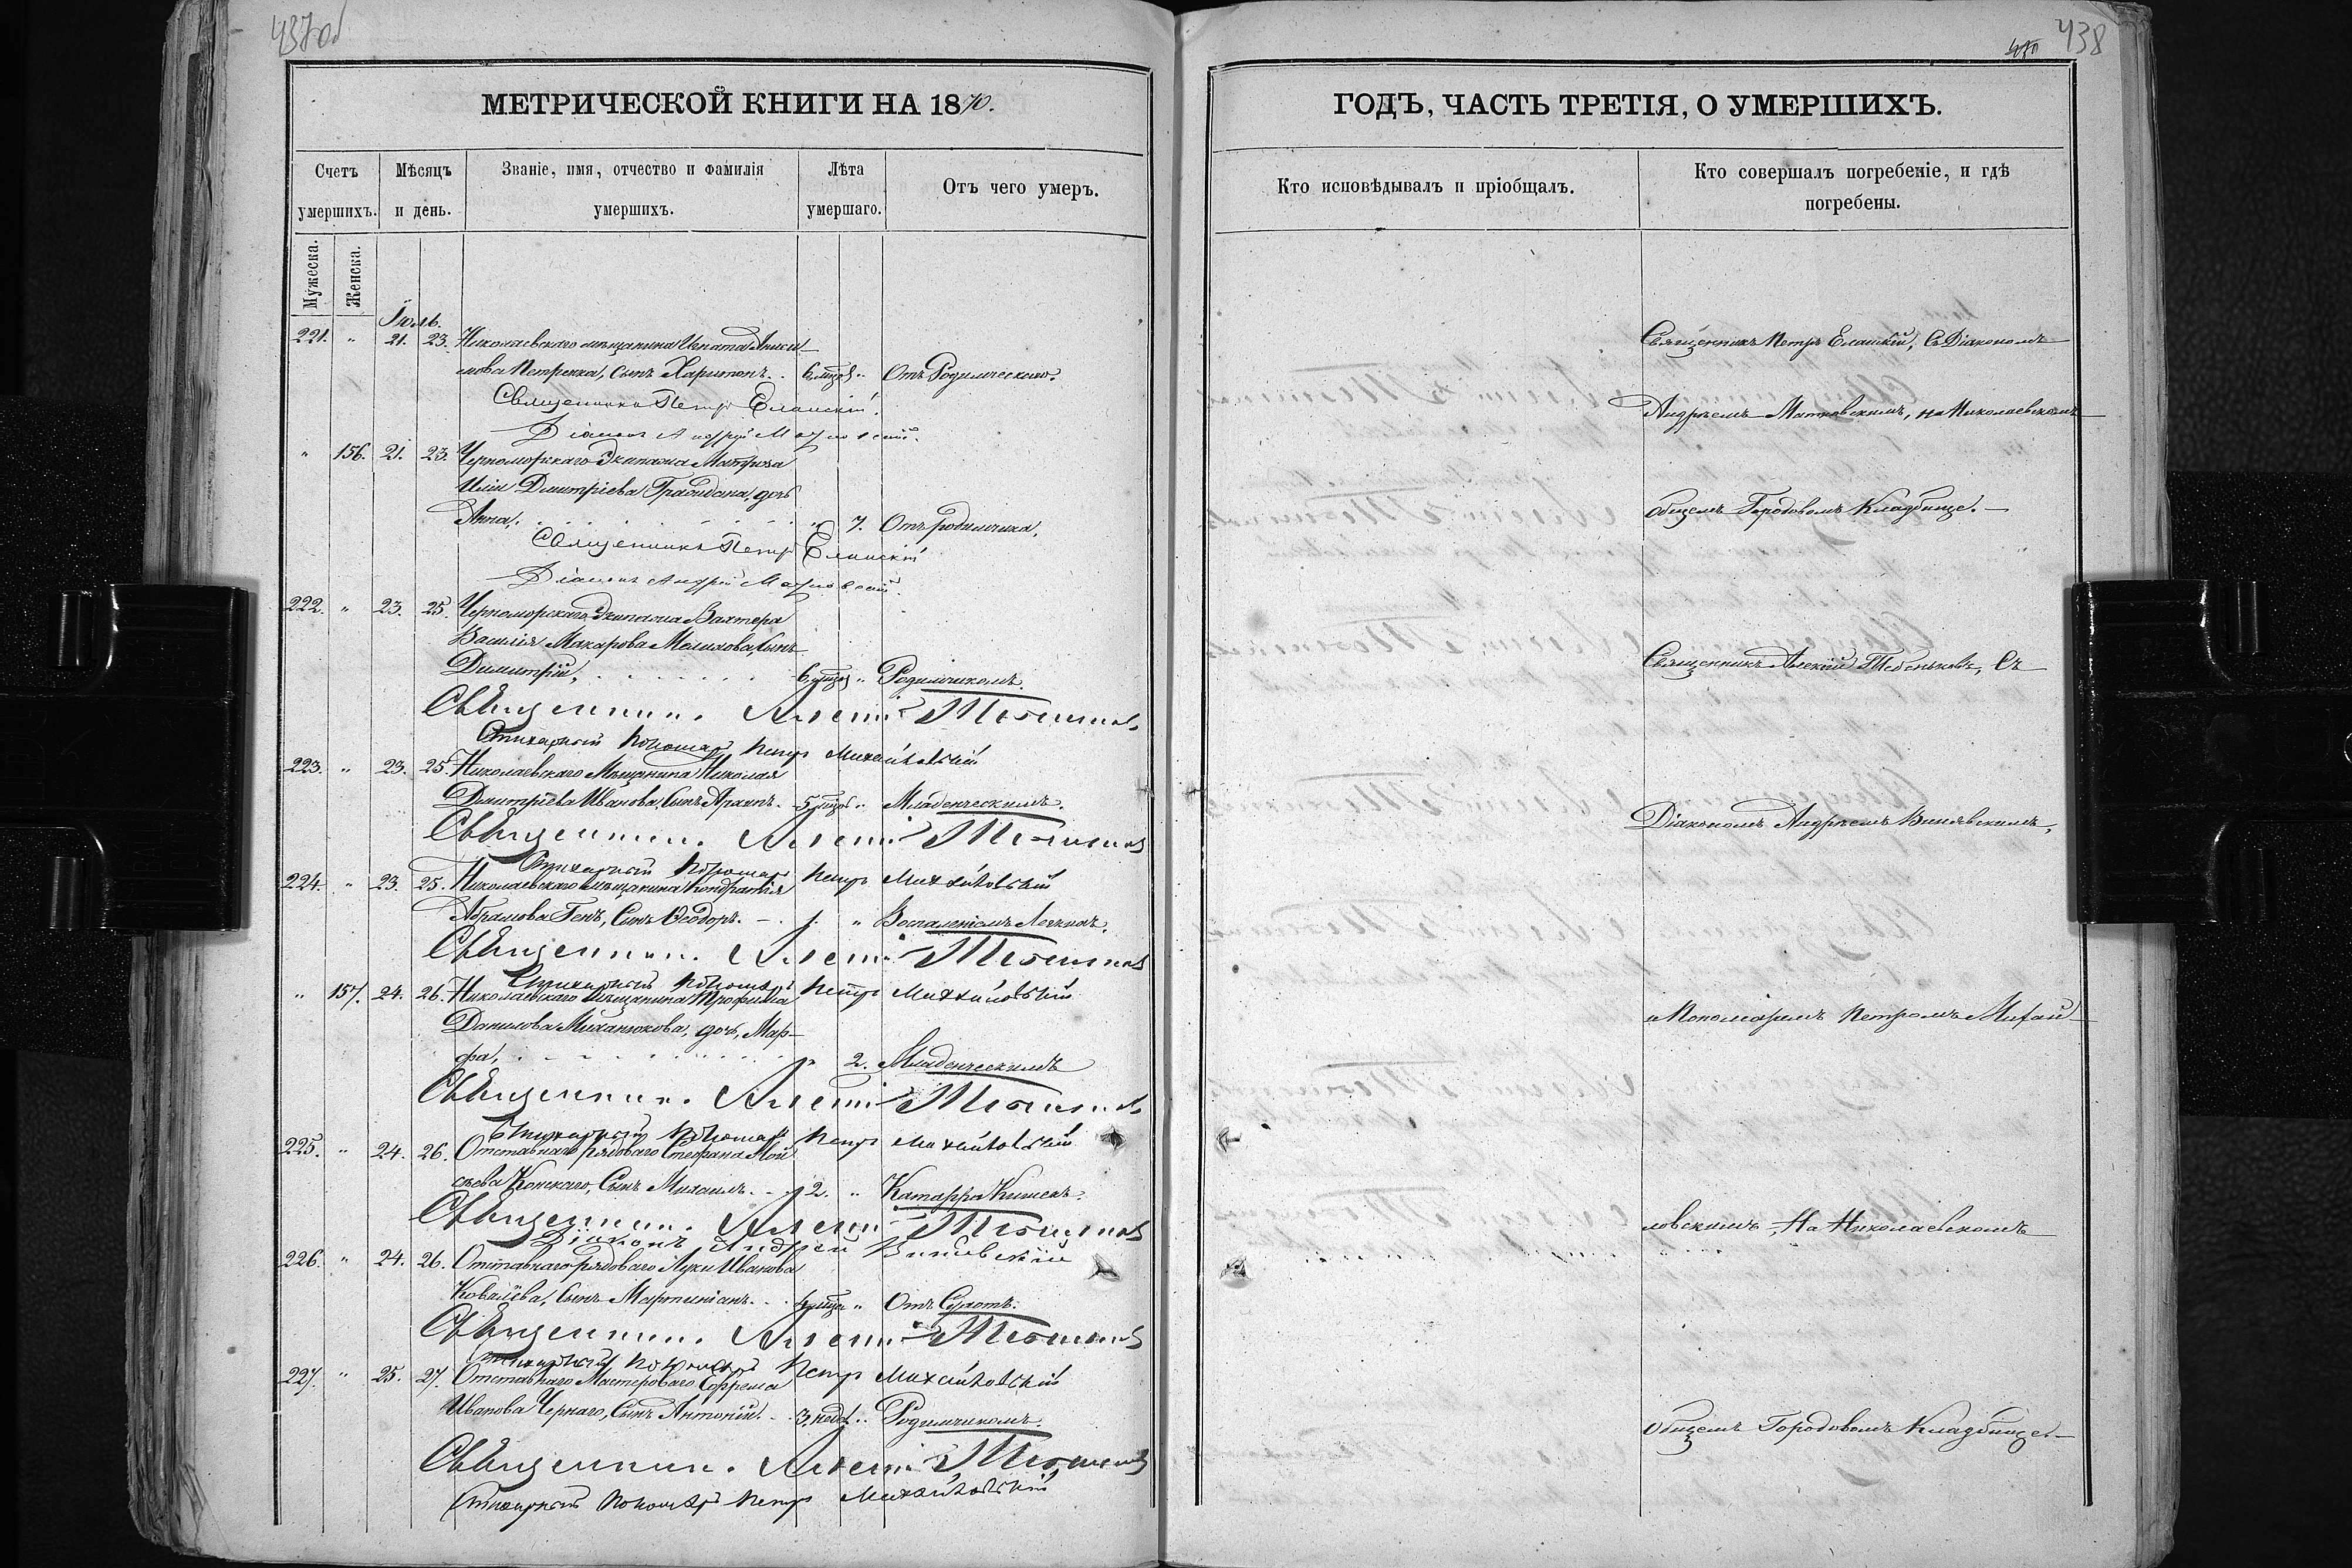 437об
МЕТРИЧЕСКОЙ КНИГИ НА 1870.
Счетъ умершихъ.
Мѣсяцъ и день.
Званіе, имя, отчество и фамилія умершихъ.
Лѣта умершаго.
Отъ чего умеръ.
Мужеска.
Женска.
Іюль.
221. " 21. 23. Николаевскаго мѣщанина Игната Аниси-
мова Петренка, сынъ Харитонъ. 6 мцов " Отъ Родимческаго.
Священникъ Петръ Еланскій.
Діаконъ Андрей
" 156. 21. 23. Черноморскаго Экипажа Матроза
Иліи Димитріева дочь
Анна, " 7. Отъ родимчика.
Священникъ Петръ Еланскій
Діаконъ Андрей
222. " 23. 25. Черноморскаго Экипажа Вахтера
Василія Макарова сынъ
Димитрій, 6 мцов " Родимчикомъ.
Священникъ Алексій
Стихарный Пономарь Петръ Михайловскій
223. " 23. 25. Николаевскаго Мѣщанина Николая
Димитріева Иванова, Сынъ Архипъ. 5 мцов " Младенческимъ.
Священникъ Алексій
Стихарный Пономарь Петръ Михайловскій
224. " 23. 25. Николаевскаго мѣщанина Кондратія
Абрамова Генъ, Сынъ Ѳеодоръ. 1. " Воспаленіемъ Легкихъ.
Священникъ Алексій
Стихарный Пономарь Петръ Михайловскій
" 157. 24. 26. Николаевскаго Мѣщанина Трофима
Данилова дочь, Мар-
фа, " 2. Младенческимъ
Священникъ Алексій
Стихарный Пономарь Петръ Михайловскій
225. " 24. 26. Отставнаго рядоваго Стефана Мои
сѣева Конскаго, Сынъ Михаилъ. 2. " Катарра Кишекъ.
Священникъ Алексій
Діаконъ Андрей
226. " 24. 26. Отставнаго рядоваго Луки Иванова
Ковалёва, Сынъ Мартиніанъ. 4 мцов " Отъ
Священникъ Алексій
Стихарный Пономарь Петръ Михайловскій
227. " 25. 27. Отставнаго Мастероваго Ефрема
Иванова Чернаго, Сынъ Антоній. 3 недѣл. " Родимчикомъ.
Священникъ Алексій
Стихарный Пономарь Петръ Михайловскій
438
ГОДЪ, ЧАСТЬ ТРЕТІЯ, О УМЕРШИХЪ.
Кто исповѣдывалъ и пріобщалъ.
Кто совершалъ погребеніе, и гдѣ
погребены.
Священникъ Петръ Еланскій, съ Діакономъ
Андреемъ на Николаевскомъ
общемъ Городовомъ Кладбище.
Священникъ Алексій съ
Діакономъ Андреемъ
и Пономаремъ Петромъ Михай-
ловскимъ, На Николаевскомъ
общемъ Городовомъ Кладбище.